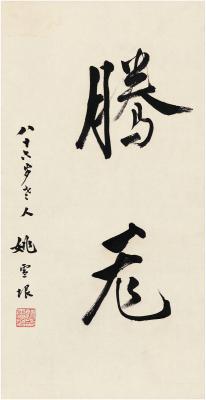 騰飛
八十六岁老人 姚雪垠